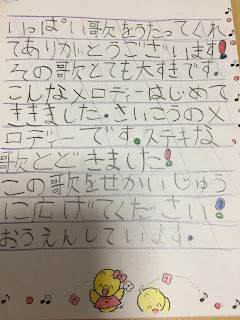 いっぱい歌をうたってくれ
てありがとうございます!
その歌とても大すきです.
こんなメロディーはじめて
ききました.さいこうのメ
ロディーです.ステキな
歌とどきました!
この歌をせかいじゅう
に広げてください!
おうえんしています.